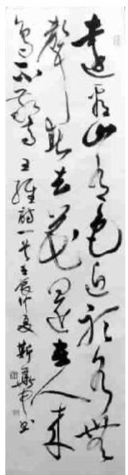 遠看山有色近聽水無
聲春去花還在人來
鳥不驚 王維詩一首壬辰仲夏 斯 書